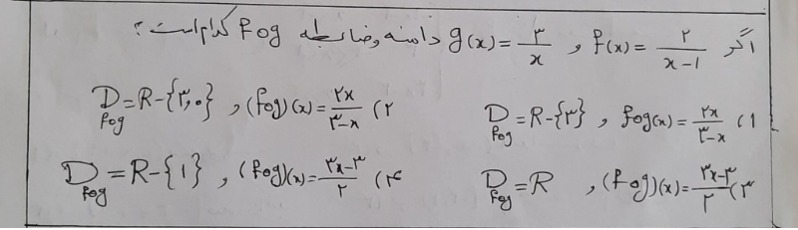 اگر f(x) = ۲/(x-۱) و g(x) = ۳/x دامنه و ضابطه fog کدام است ؟
۱) fog(x) = ۲x/(۳-x) , D_fog = R-{۳}
۲) (fog)(x) = ۲x/(۳-x) , D_fog = R-{۳,۰}
۳) (fog)(x) = (۳x-۳)/۲ , D_fog = R
۴) (fog)(x) = (۳x-۳)/۲ , D_fog = R-{۱}